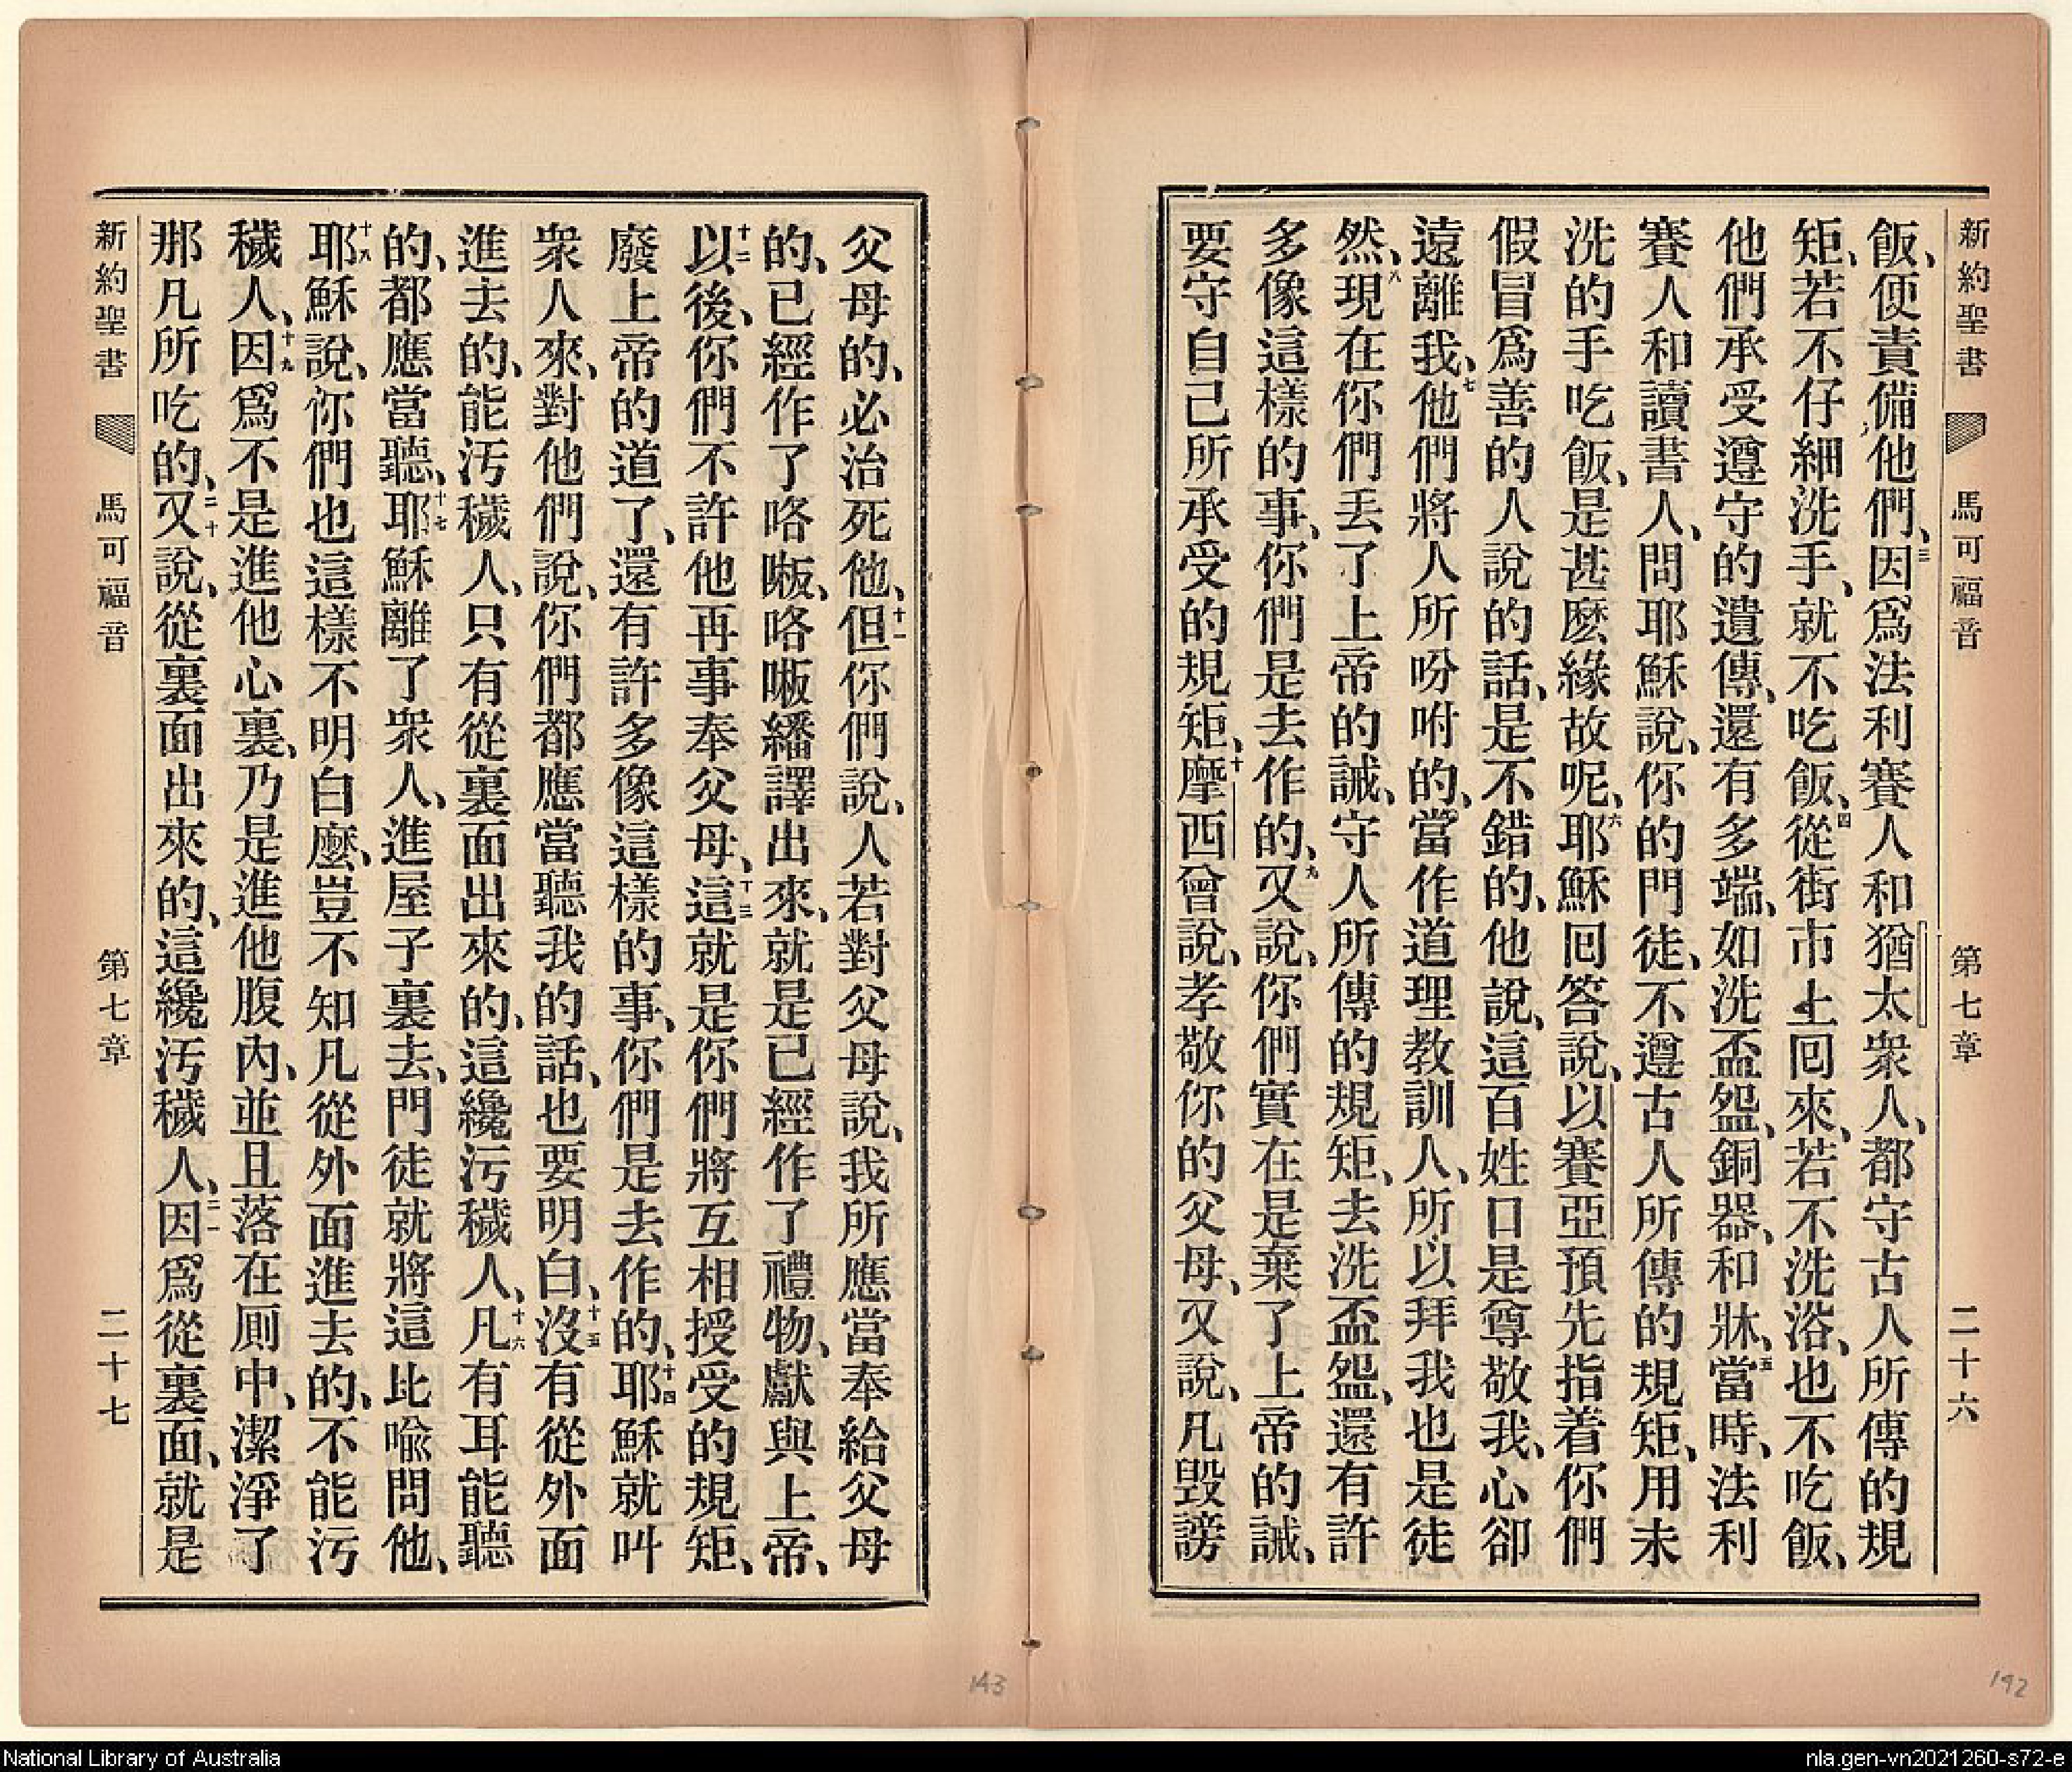 新約聖書 馬可福音 第七章 二十六
飯、便責備他們、三因爲法利賽人和猶太衆人、都守古人所傳的規
矩、若不仔細洗手、就不吃飯、四從街市上囘來、若不洗浴、也不吃飯、
他們承受遵守的遺傳、還有多端、如洗盃盌、銅器、和牀、五當時、法利
賽人和讀書人、問耶穌說、你的門徒、不遵古人所傳的規矩、用未
洗的手吃飯、是甚麽緣故呢、六耶穌囘答說、以賽亞預先指着你們
假冒爲善的人說的話、是不錯的、他說、這百姓口是尊敬我、心卻
遠離我、七他們將人所吩咐的、當作道理教訓人、所以拜我也是徒
然、八現在你們丟了上帝的誡、守人所傳的規矩、去洗盃盌、還有許
多像這樣的事、你們是去作的、九又說、你們實在是棄了上帝的誡、
要守自己所承受的規矩、十摩西曾說、孝敬你的父母、又說、凡毀謗
父母的、必治死他、十一但你們說、人若對父母說、我所應當奉給父母
的、已經作了咯㗑、咯㗑繙譯出來、就是已經作了禮物、獻與上帝、
十二以後、你們不許他再事奉父母、十三這就是你們將互相授受的規矩、
廢上帝的道了、還有許多像這樣的事、你們是去作的、十四耶穌就叫
衆人來、對他們說、你們都應當聽我的話、也要明白、十五沒有從外面
進去的、能污穢人、只有從裏面出來的、這纔污穢人、十六凡有耳能聽
的、都應當聽、十七耶穌離了衆人、進屋子裏去、門徒就將這比喻問他、
十八耶穌說、你們也這樣不明白麽、豈不知凡從外面進去的、不能污
穢人、十九因爲不是進他心裏、乃是進他腹內、並且落在厠中、潔淨了
那凡所吃的、二十又說、從裏面出來的、這纔污穢人、二一因爲從裏面、就是
新約聖書 馬可福音 第七章 二十七
143
192
National Library of Australia
nla.gen-vn2021260-s72-e